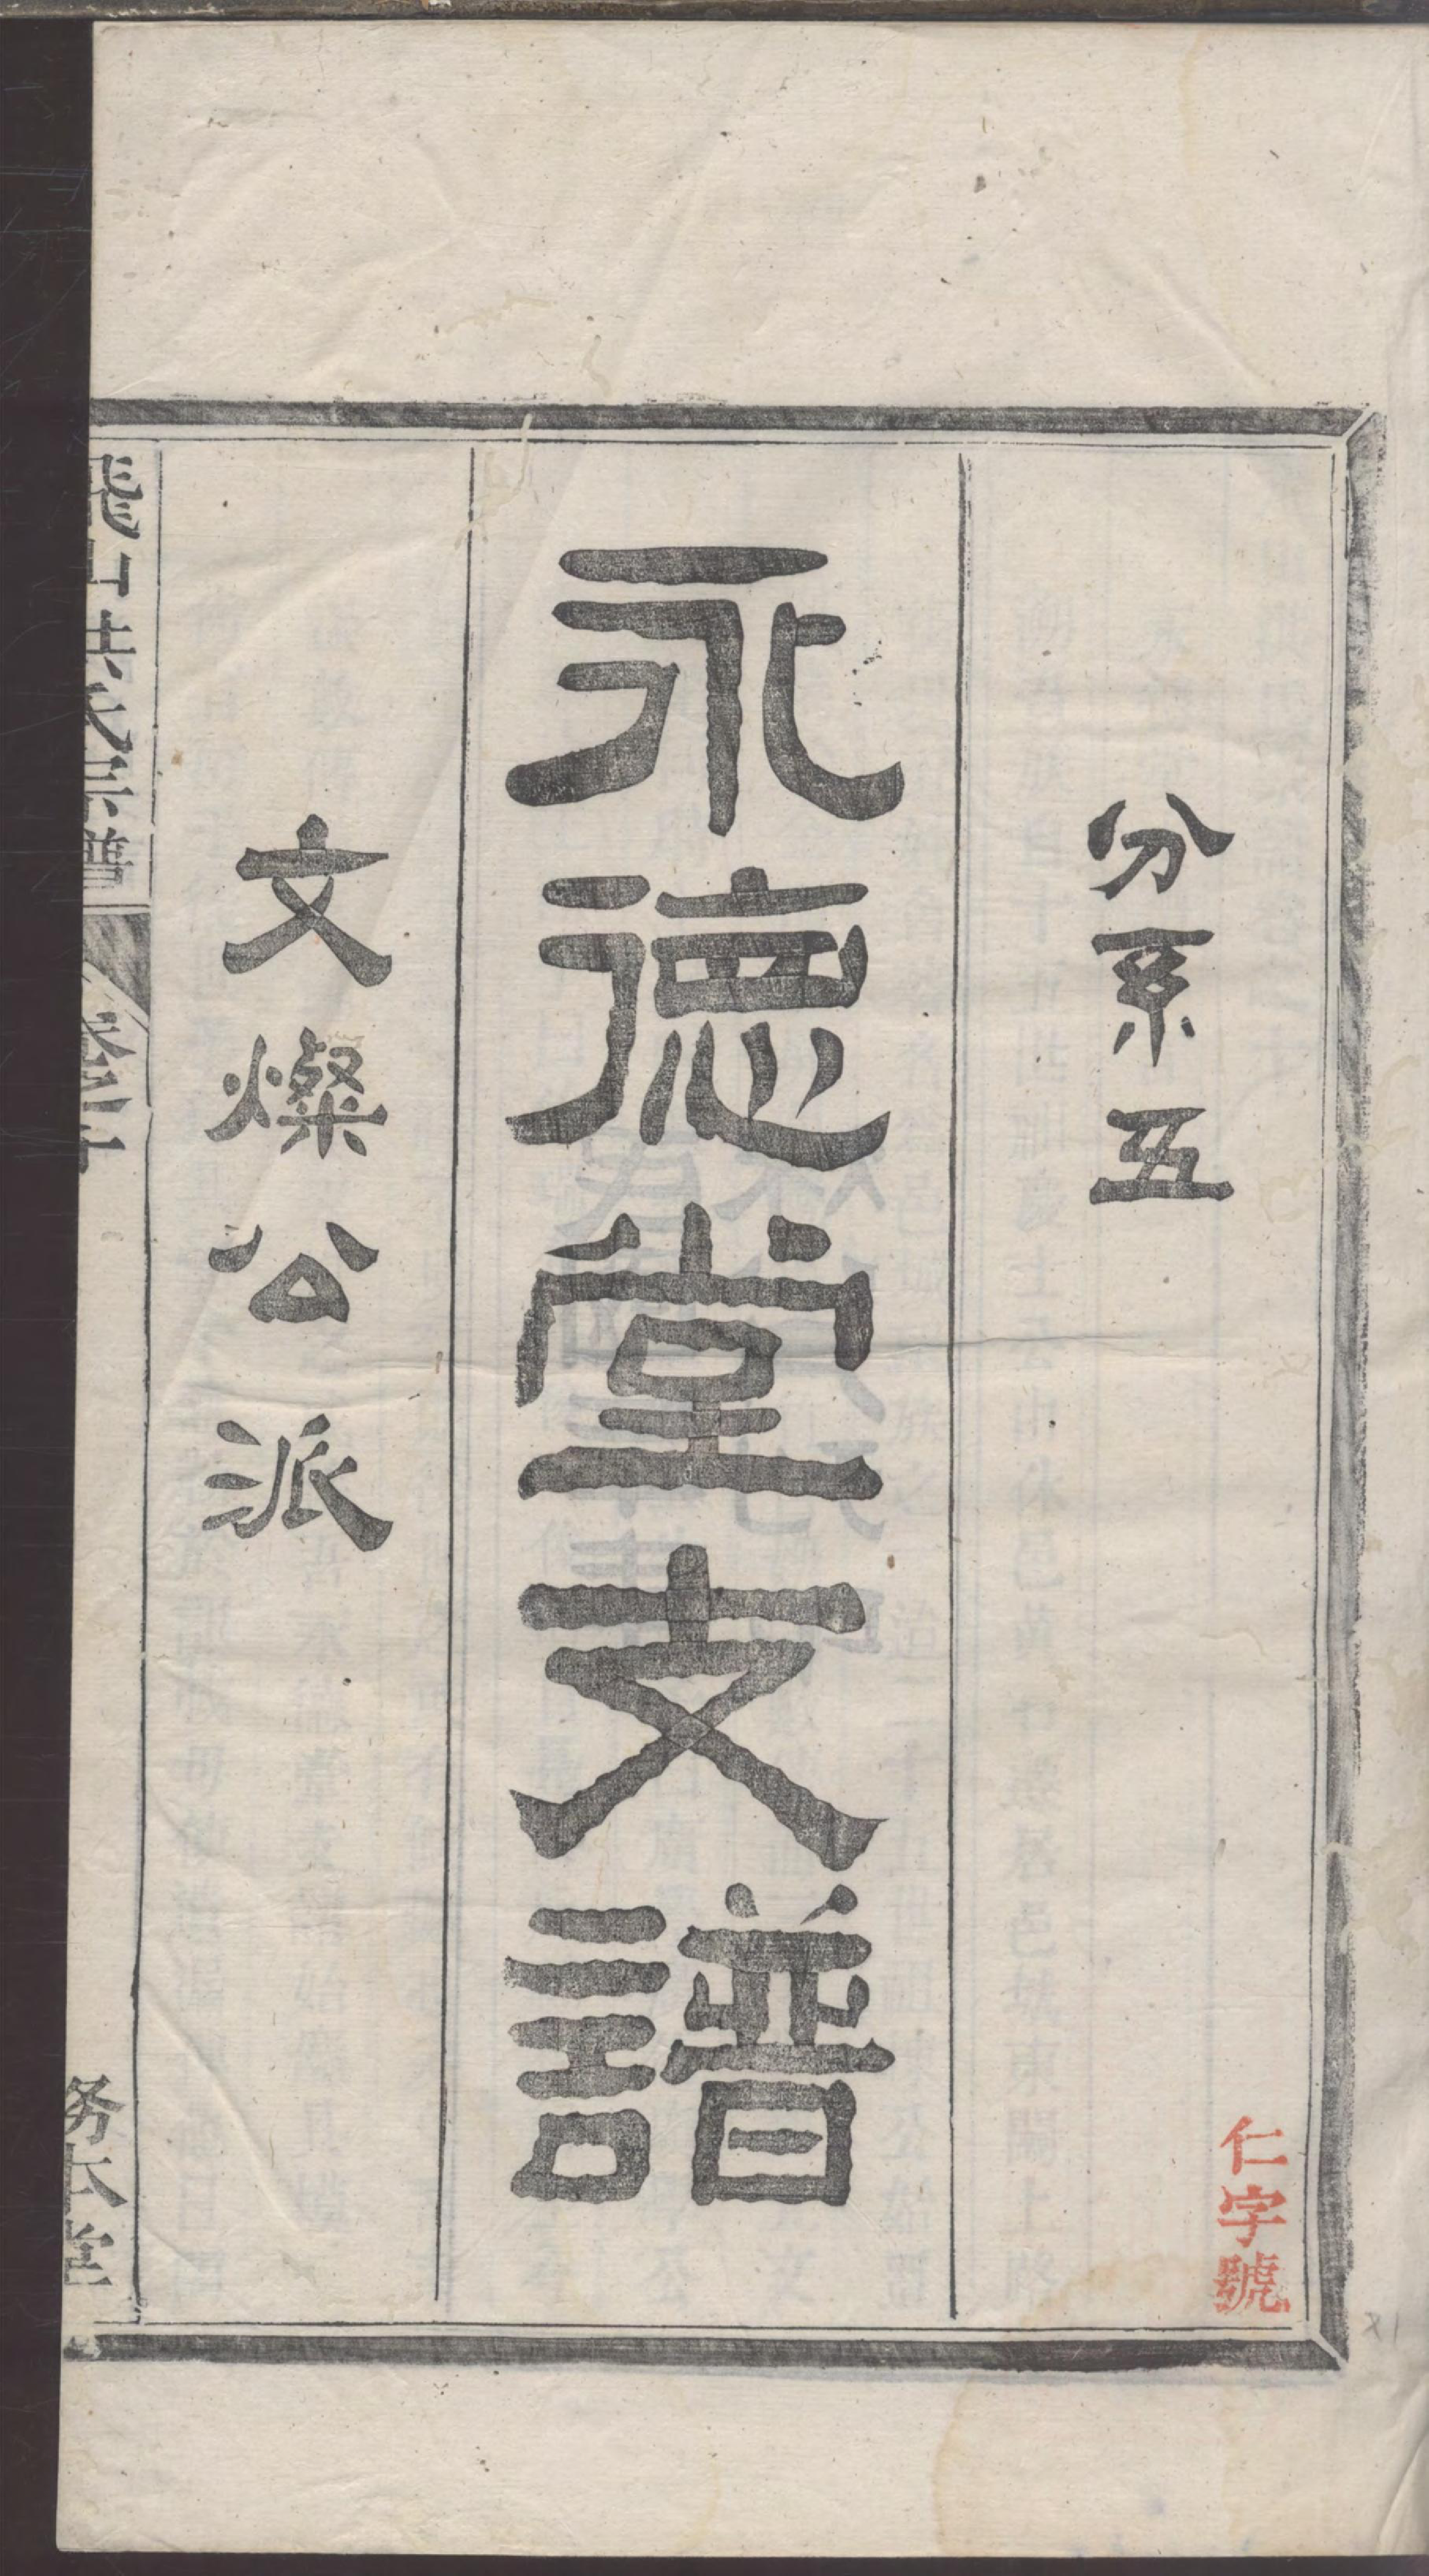 分系五
仁字號
永德堂支譜
文燦公派
山洪氏宗譜
務本堂